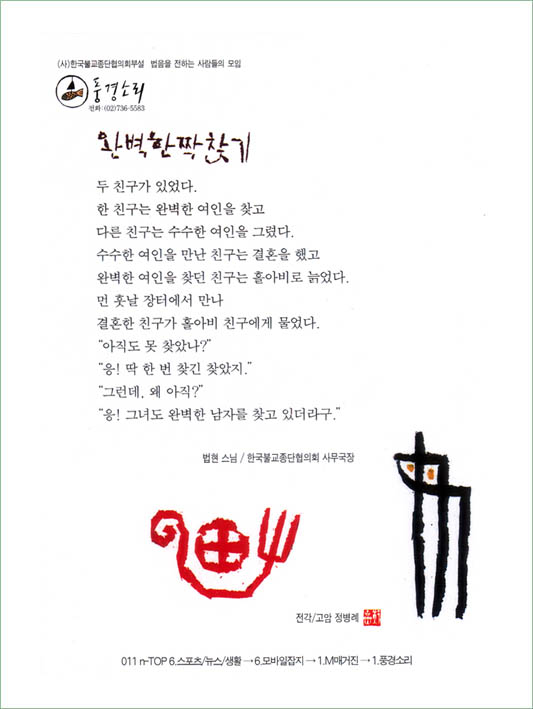 (사)한국불교종단협의회부설 법음을 전하는 사람들의 모임
풍경소리
전화:(02)736-5583
완벽한 짝 찾기
두 친구가 있었다.
한 친구는 완벽한 여인을 찾고
다른 친구는 수수한 여인을 그렸다.
수수한 여인을 만난 친구는 결혼을 했고
완벽한 여인을 찾던 친구는 홀아비로 늙었다.
먼 훗날 장터에서 만나
결혼한 친구가 홀아비 친구에게 물었다.
“아직도 못 찾았나?”
“응! 딱 한 번 찾긴 찾았지.”
“그런데, 왜 아직?”
“응! 그녀도 완벽한 남자를 찾고 있더라구.”
법현 스님 / 한국불교종단협의회 사무국장
전각/고암 정병례
011 n-TOP 6.스포츠/뉴스/생활 → 6.모바일잡지 → 1.M매거진 → 1.풍경소리